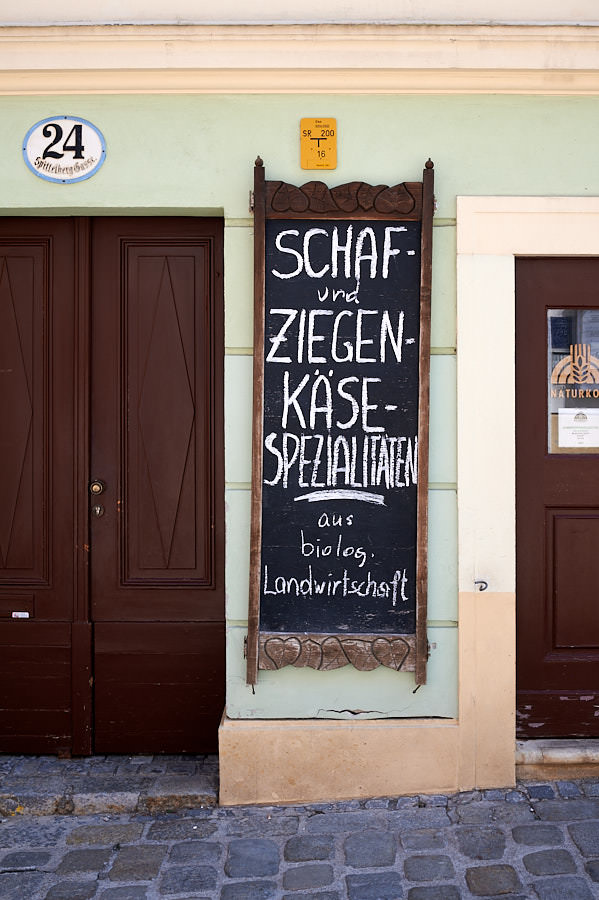 24
Spittelberg Gasse
SR 200
16
SCHAF-
und
ZIEGEN-
KÄSE-
SPEZIALITÄTEN
aus
biolog.
Landwirtschaft
NATURKO